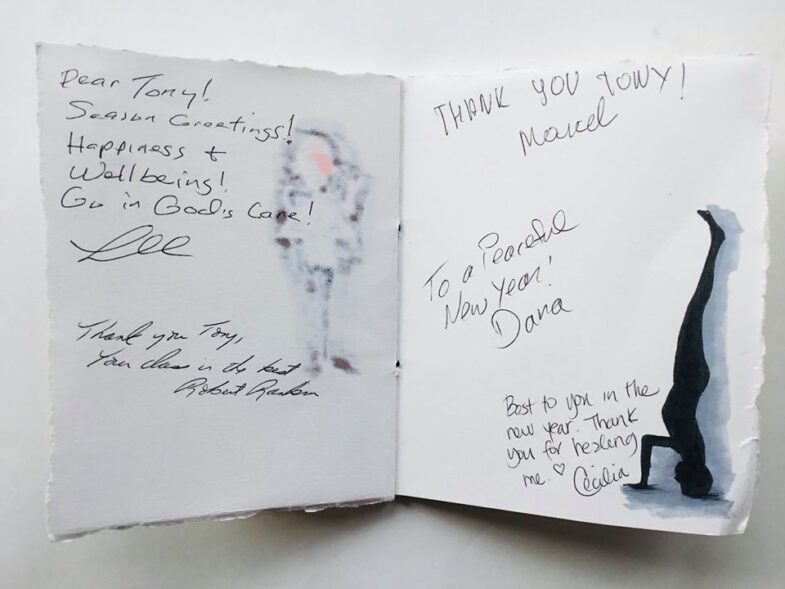 Dear Tony!
Season Greetings!
Happiness +
Wellbeing!
Go in God's Care!
Lee
Thank you Tony,
Your class is the best
Robert
THANK YOU TONY!
To a Peaceful
New Year!
Dana
Best to you in the
new year. Thank
you for healing
me. ♡ Cecilia